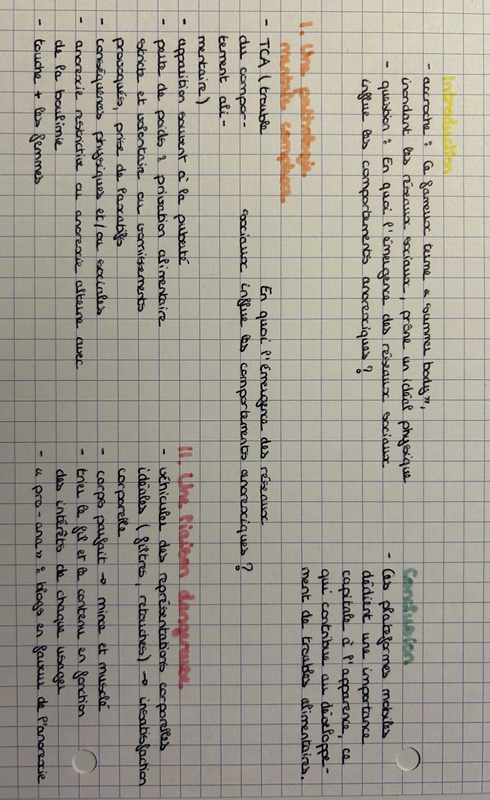 Introduction
- accroche : Ce fameux terme « summer body »,
inondant les réseaux sociaux, prône un idéal physique
- question : En quoi l'émergence des réseaux sociaux
influe les comportements anorexiques ?
Conclusion
- Ces plateformes mobiles
dédient une importance
capitale à l'apparence, ce
qui contribue au développe-
ment de troubles alimentaires.
En quoi l'émergence des réseaux
sociaux influe les comportements anorexiques ?
I. Une pathologie
mentale complexe
- TCA (trouble
du compor-
tement ali-
mentaire)
- apparition souvent à la puberté
- perte de poids : privation alimentaire
stricte et volontaire ou vomissements
provoqués, prise de laxatifs
- conséquences physiques et/ou sociales
- anorexie restrictive ou anorexie alterne avec
de la boulimie
- touche + les femmes
II. Une liaison dangereuse
- véhicules des représentations corporelles
idéales (filtres, retouches) → insatisfaction
corporelle
- corps parfait → mince et musclé
- trie le fil et le contenu en fonction
des intérêts de chaque usager
- « pro-ana » : blogs en faveur de l'anorexie